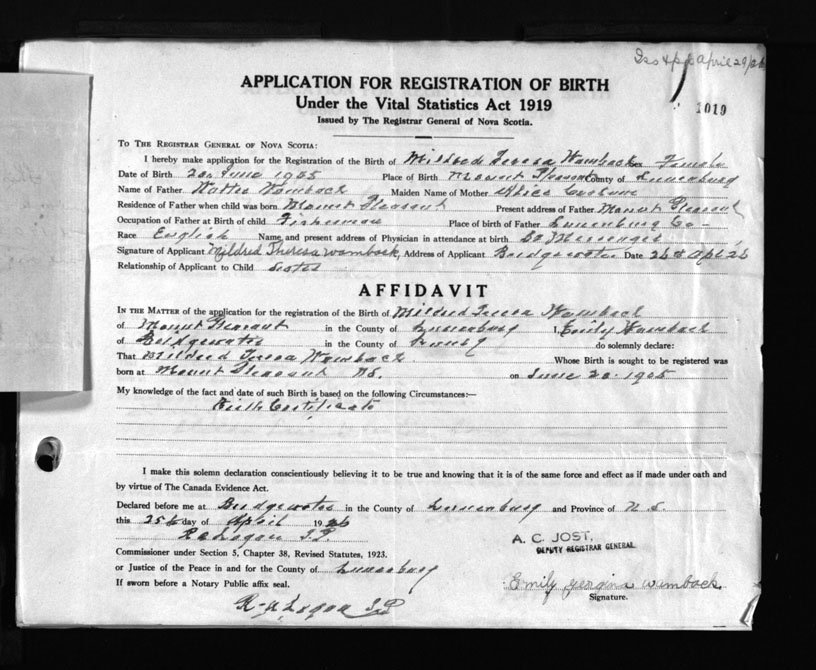 Iss April 29/26
APPLICATION FOR REGISTRATION OF BIRTH
1019
Under the Vital Statistics Act 1919
Issued by The Registrar General of Nova Scotia.
TO THE REGISTRAR GENERAL OF NOVA SCOTIA:
I hereby make application for the Registration of the Birth of Mildred Teresa Wamback Sex Female
Date of Birth 20 June 1905 Place of Birth Mount Pleasant County of Lunenburg
Name of Father Wamback Maiden Name of Mother
Residence of Father when child was born Mount Pleasant Present address of Father Mount Pleasant
Occupation of Father at Birth of child Fisherman Place of birth of Father Lunenburg Co-
Race English Name and present address of Physician in attendance at birth Dr Messenger
Signature of Applicant Mildred Theresa Wamback, Address of Applicant Bridgewater Date Apl 26
Relationship of Applicant to Child
AFFIDAVIT
IN THE MATTER of the application for the registration of the Birth of Mildred Teresa Wamback
of Mount Pleasant in the County of Lunenburg I, Emily Wamback
of Bridgewater in the County of do solemnly declare:
That Mildred Teresa Wamback Whose Birth is sought to be registered was
born at Mount Pleasant NS. on June 20. 1905
My knowledge of the fact and date of such Birth is based on the following Circumstances:—
Birth Certificate
I make this solemn declaration conscientiously believing it to be true and knowing that it is of the same force and effect as if made under oath and
by virtue of The Canada Evidence Act.
Declared before me at Bridgewater in the County of Lunenburg and Province of N.S.
this day of April 1926
Logan J.P.
A. C. JOST,
DEPUTY REGISTRAR GENERAL
Commissioner under Section 5, Chapter 38, Revised Statutes, 1923.
or Justice of the Peace in and for the County of Lunenburg
If sworn before a Notary Public affix seal.
Emily Georgina Wamback
Signature.
Logan J.P.